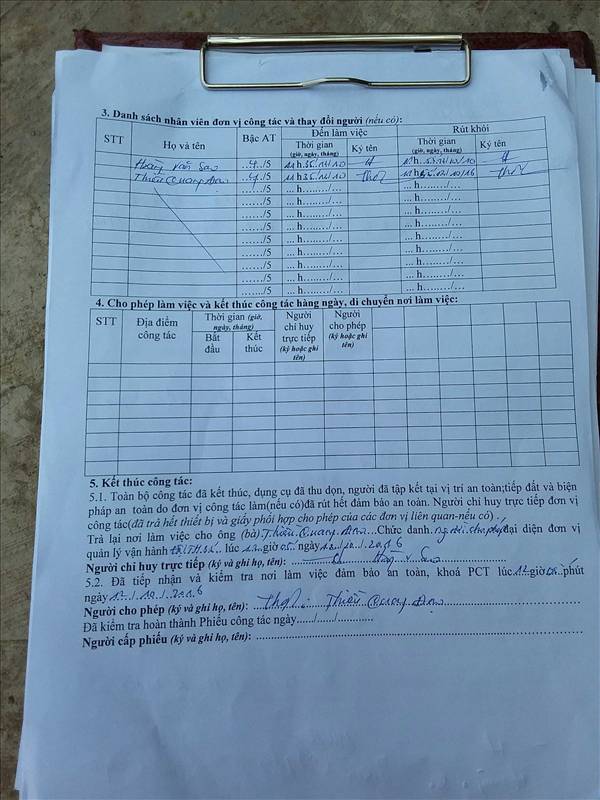 3. Danh sách nhân viên đơn vị công tác và thay đổi người (nếu có):
STT Họ và tên Bậc AT Đến làm việc Rút khỏi
Thời gian (giờ, ngày, tháng) Ký tên Thời gian (giờ, ngày, tháng) Ký tên
Hoàng Văn Sao 4/5
Thiều Quang 4/5 11h35
....../5 ... h......../... ... h......../...
....../5 ... h......../... ... h......../...
....../5 ... h......../... ... h......../...
....../5 ... h......../... ... h......../...
....../5 ... h......../... ... h......../...
....../5 ... h......../... ... h......../...
....../5 ... h......../... ... h......../...
....../5 ... h......../... ... h......../...
4. Cho phép làm việc và kết thúc công tác hàng ngày, di chuyển nơi làm việc:
STT Địa điểm công tác Thời gian (giờ, ngày, tháng) Người chỉ huy trực tiếp (ký hoặc ghi tên) Người cho phép (ký hoặc ghi tên)
Bắt đầu Kết thúc
5. Kết thúc công tác:
5.1. Toàn bộ công tác đã kết thúc, dụng cụ đã thu dọn, người đã tập kết tại vị trí an toàn;tiếp đất và biện
pháp an toàn do đơn vị công tác làm(nếu có)đã rút hết đảm bảo an toàn. Người chỉ huy trực tiếp đơn vị
công tác(đã trả hết thiết bị và giấy phối hợp cho phép của các đơn vị liên quan-nếu có) .
Trả lại nơi làm việc cho ông (bà) Thiều Quang ...Chức danh người cho phép đại diện đơn vị
quản lý vận hành lúc 12 giờ 05 ngày 12/10/2016
Người chỉ huy trực tiếp (ký và ghi họ, tên): Hoàng V Sao
5.2. Đã tiếp nhận và kiểm tra nơi làm việc đảm bảo an toàn, khoá PCT lúc 12 giờ 05 phút
ngày 12/10/2016
Người cho phép (ký và ghi họ, tên): Thiều Quang
Đã kiểm tra hoàn thành Phiếu công tác ngày....../....../............
Người cấp phiếu (ký và ghi họ, tên):